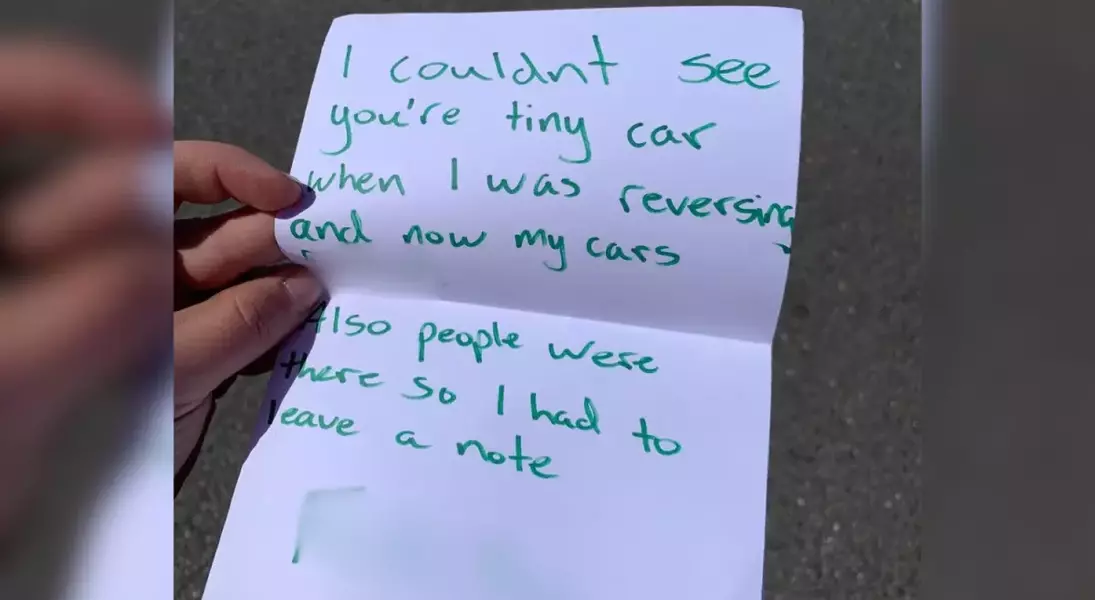 I couldnt see
you're tiny car
when I was reversing
and now my cars
Also people were
there so I had to
leave a note